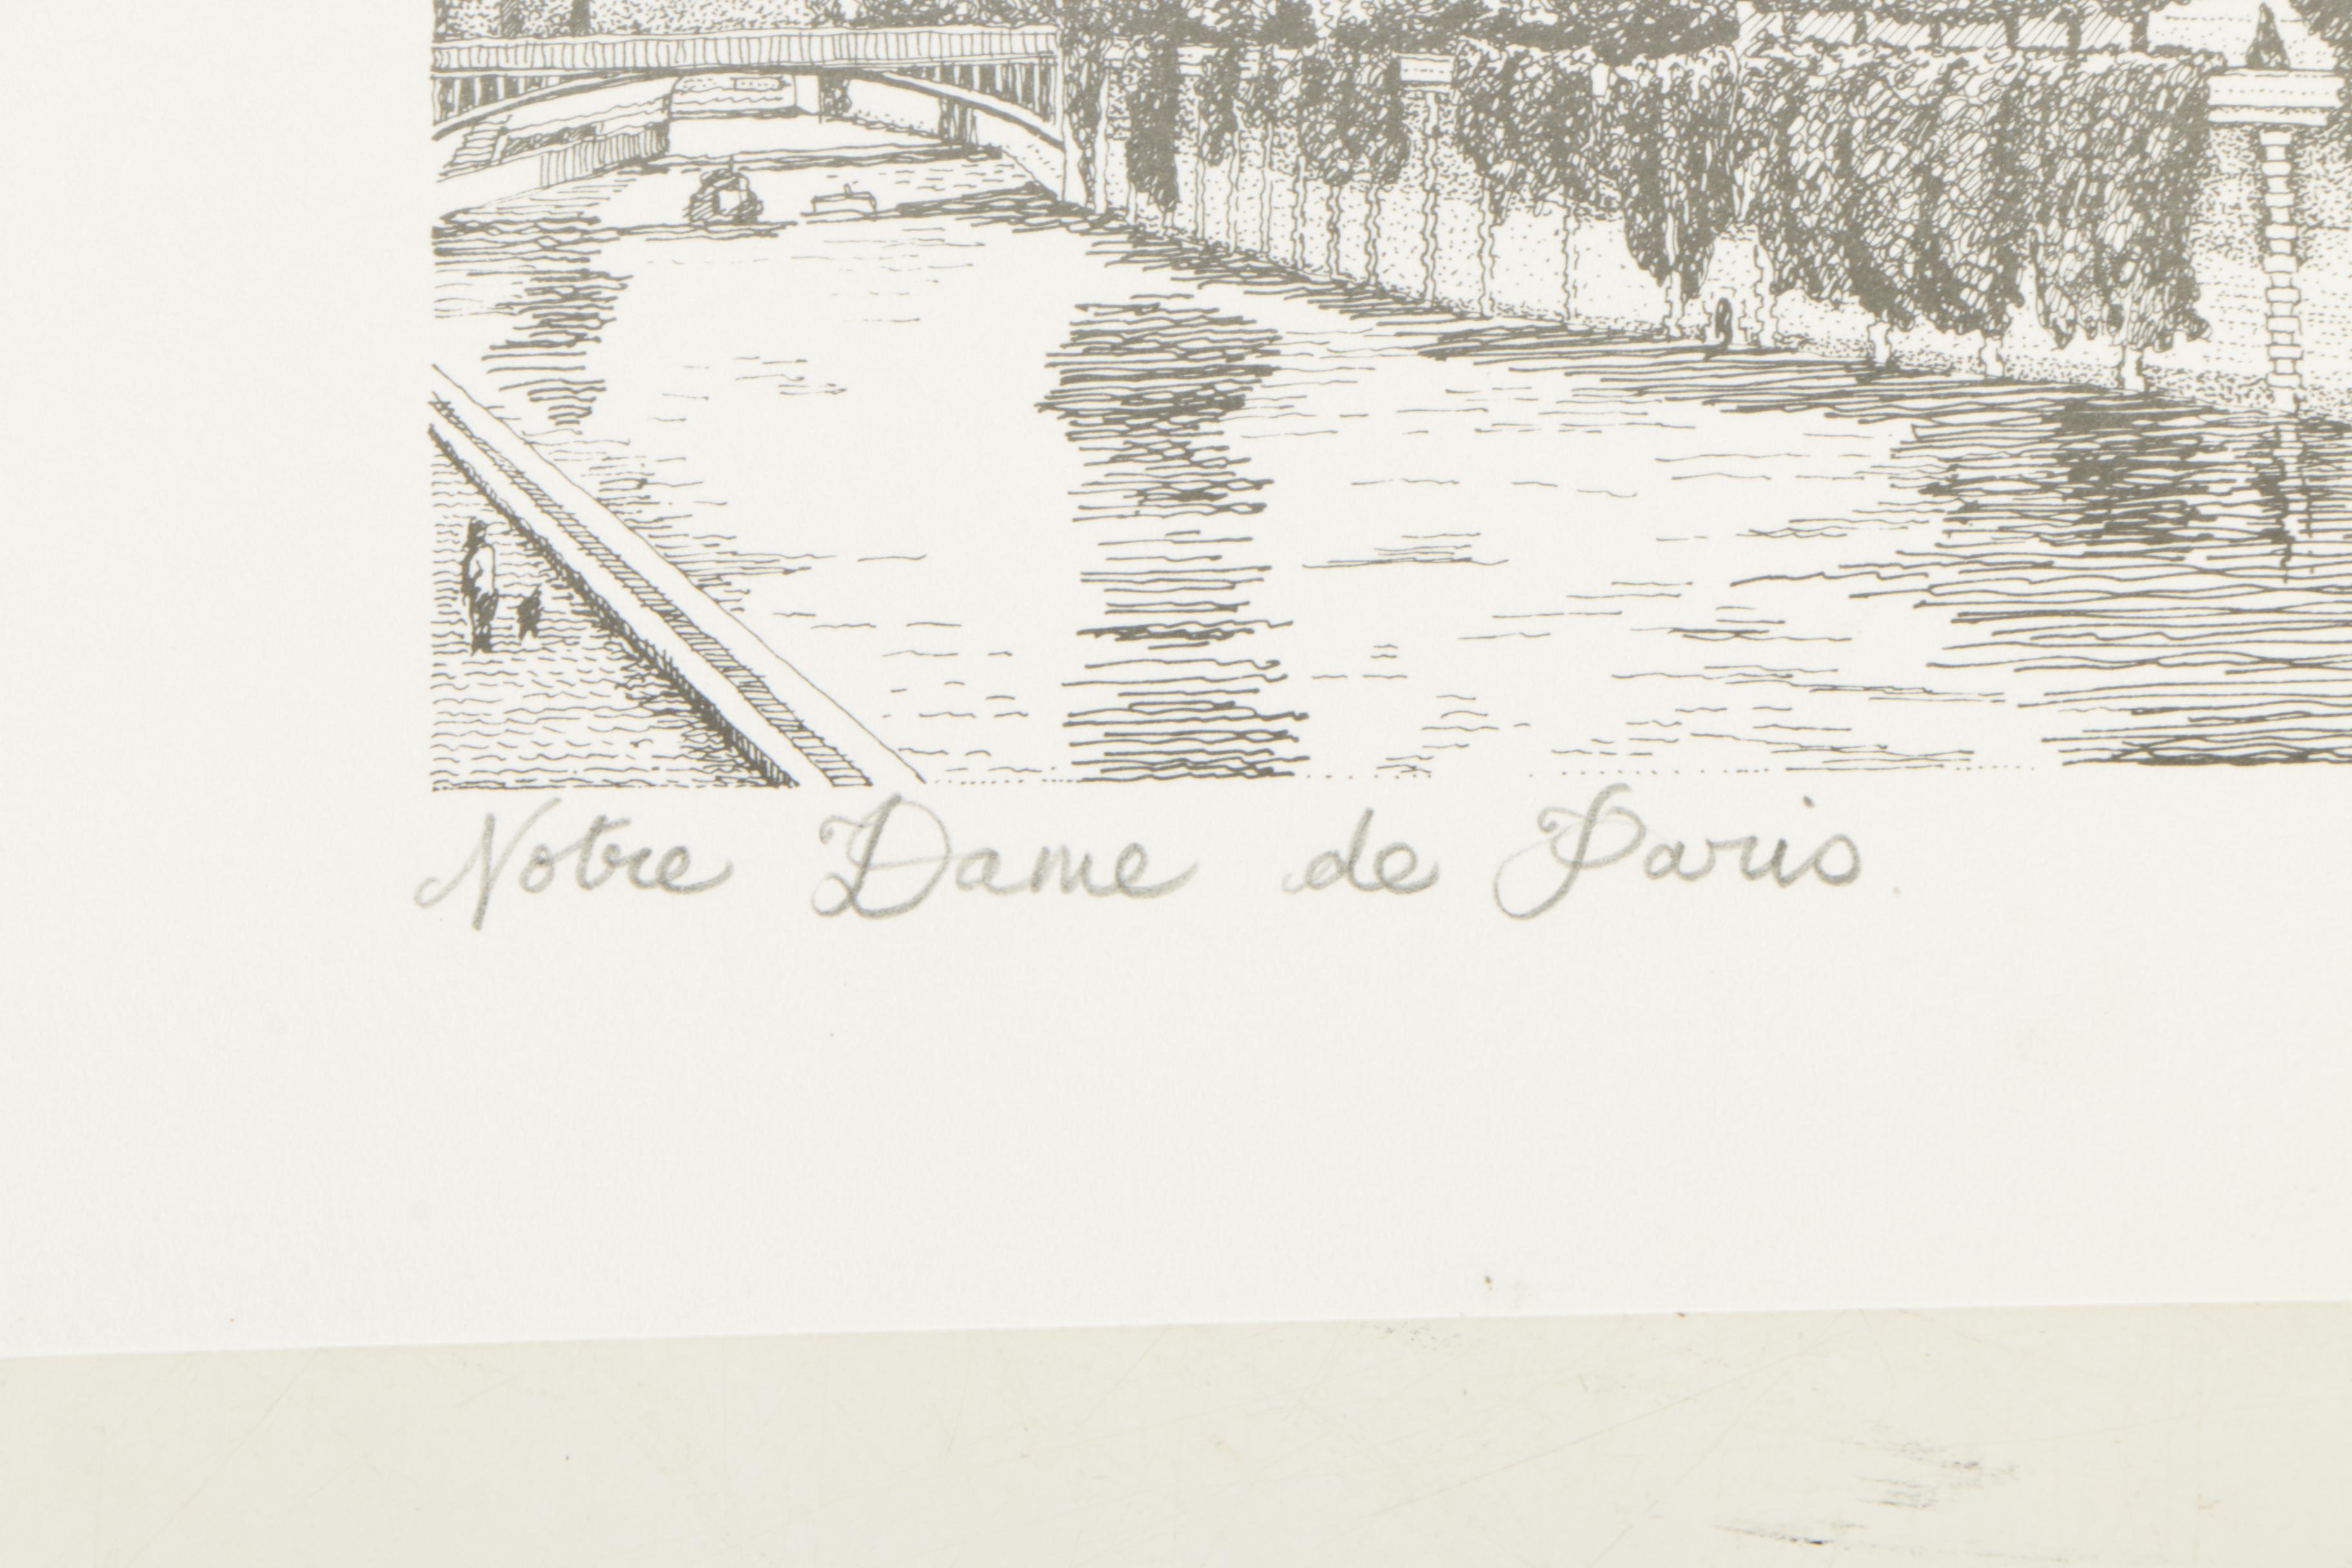 Notre Dame de Paris.